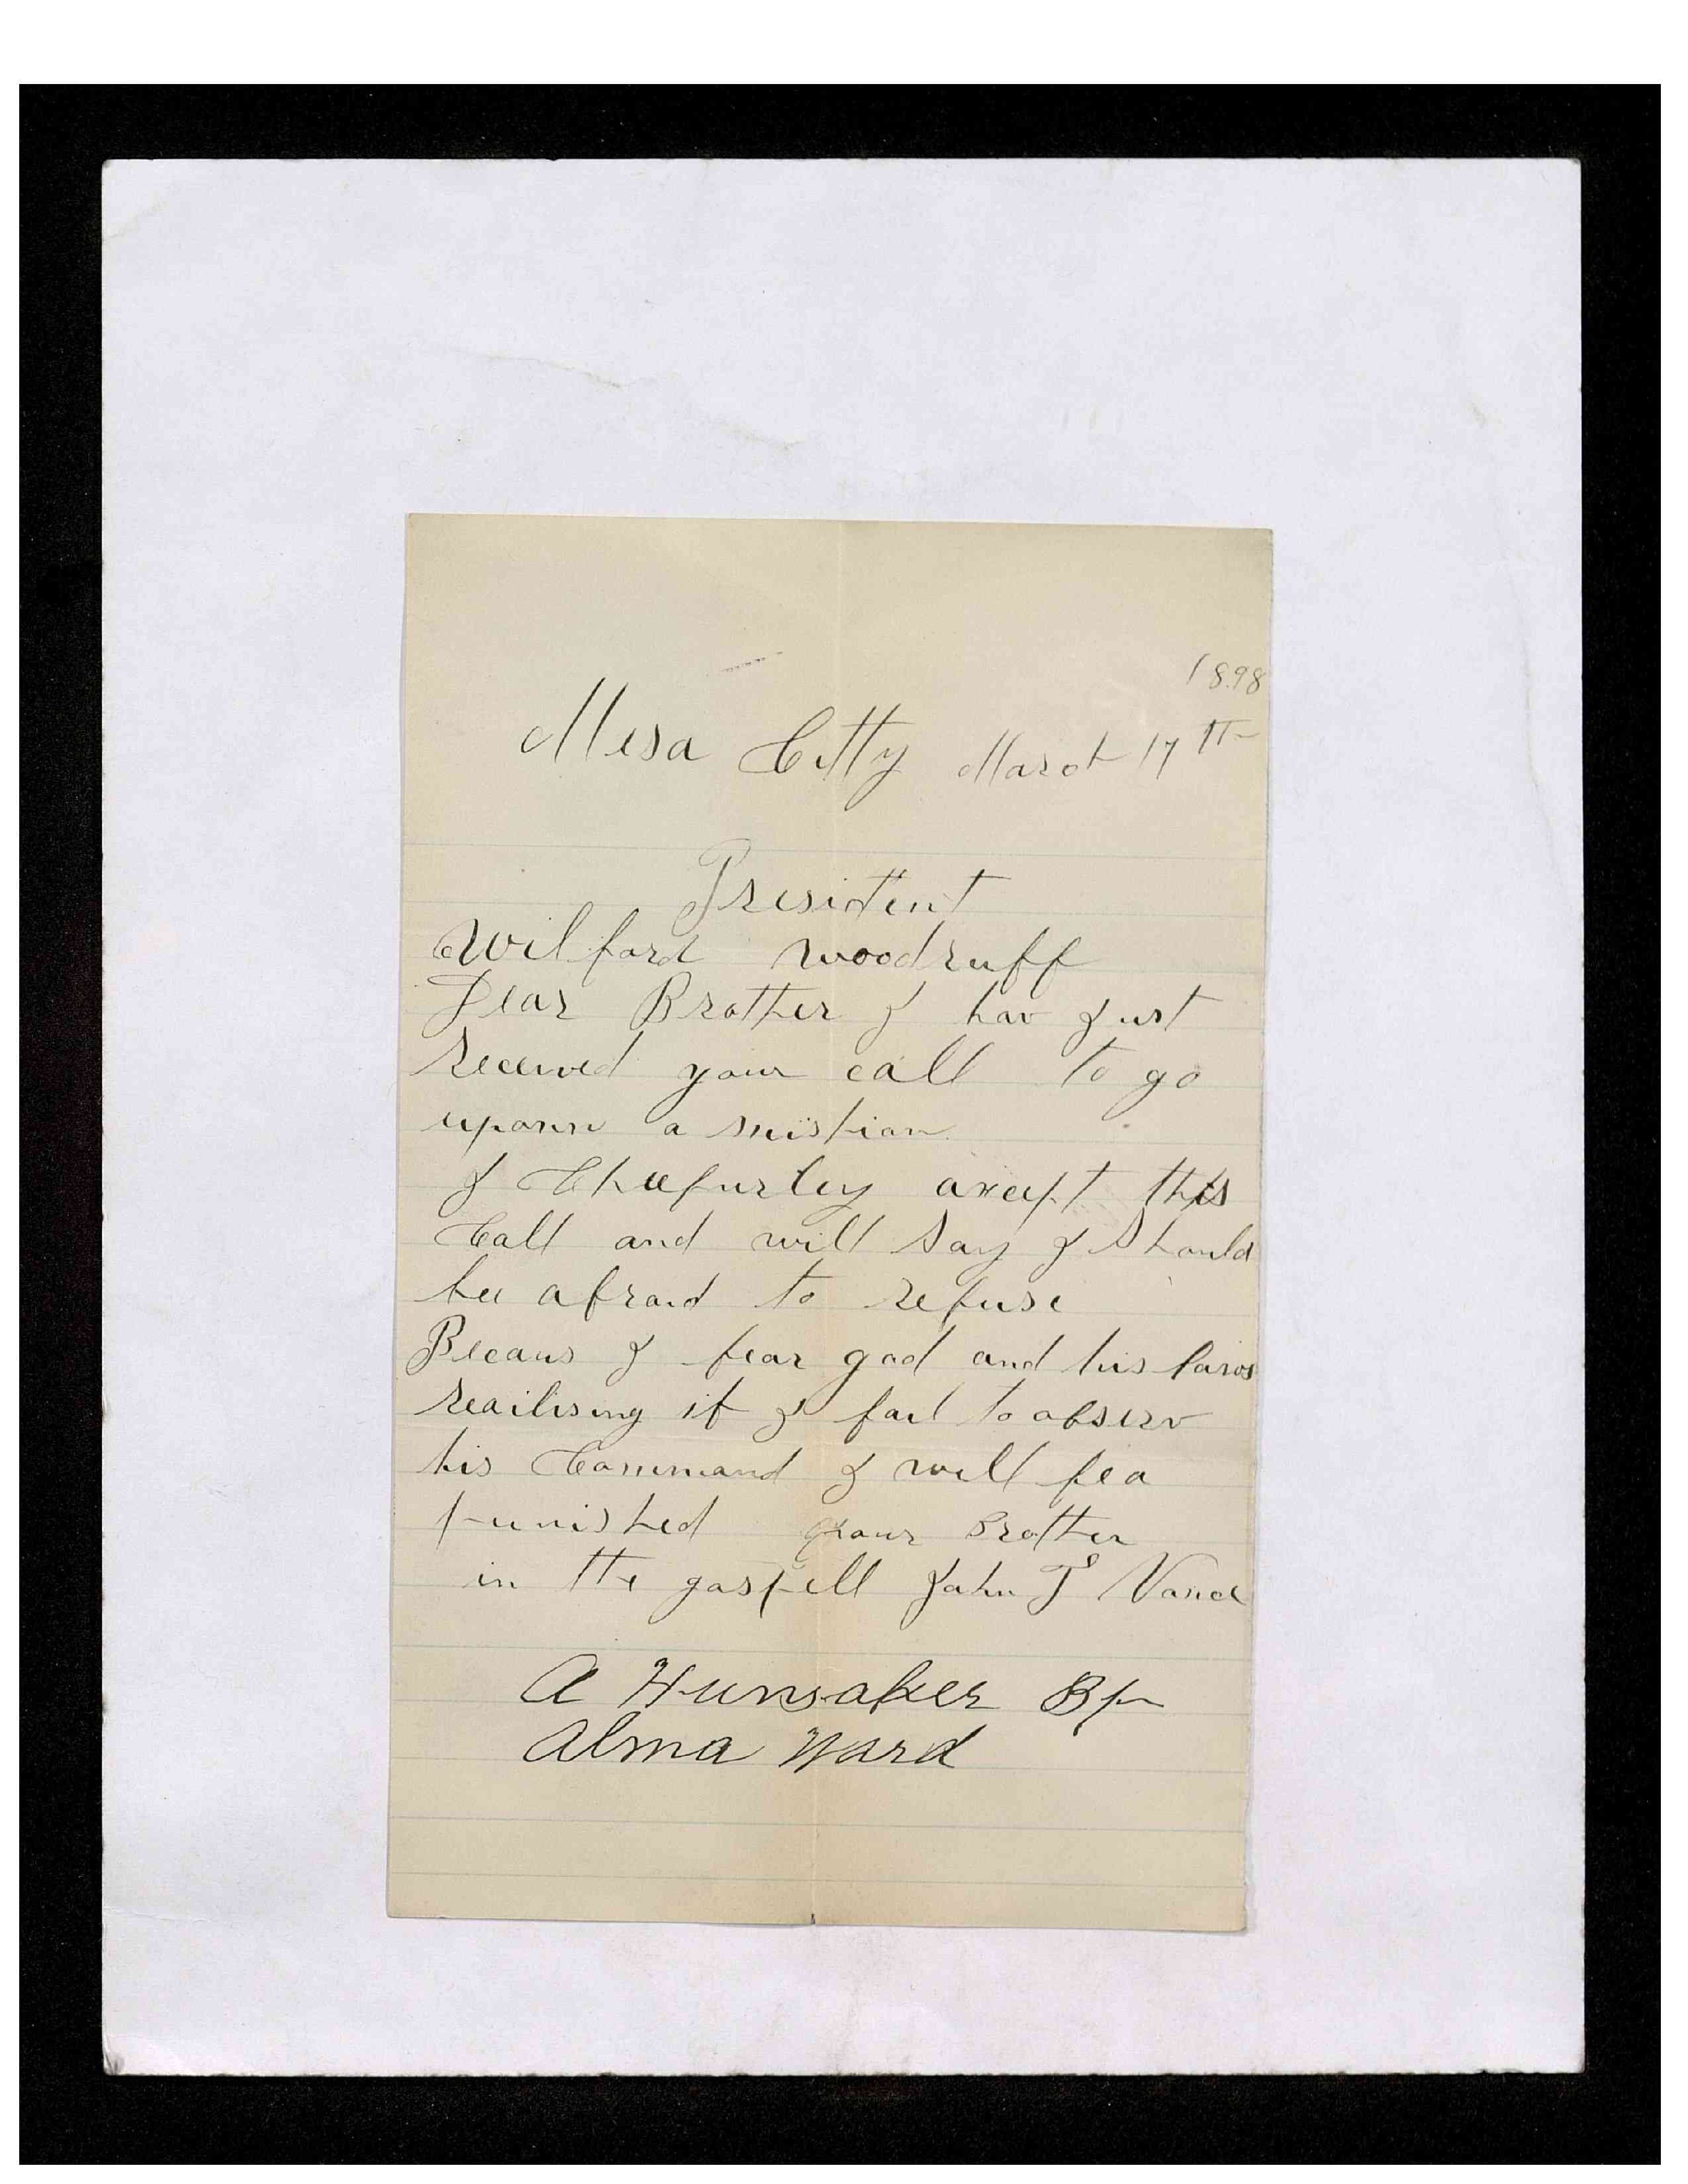 1898
Mesa Citty March 17th
President
Wilford Woodruff
Dear Brother I hav Just
received your call to go
uponn a mistion
I Cheefurley axcept this
Call and will Say I Should
bee afraid to refuse
Becaus I fear god and his laws
reailising if I fail to observ
his Command I will bea
punished your Brother
in the gospell John T Vance
A Hunsaker Bp
Alma Ward